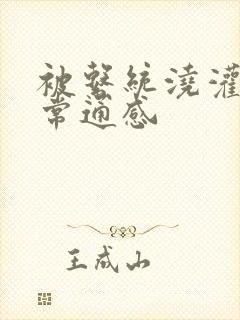 被系統澆灌
常通感
王成山